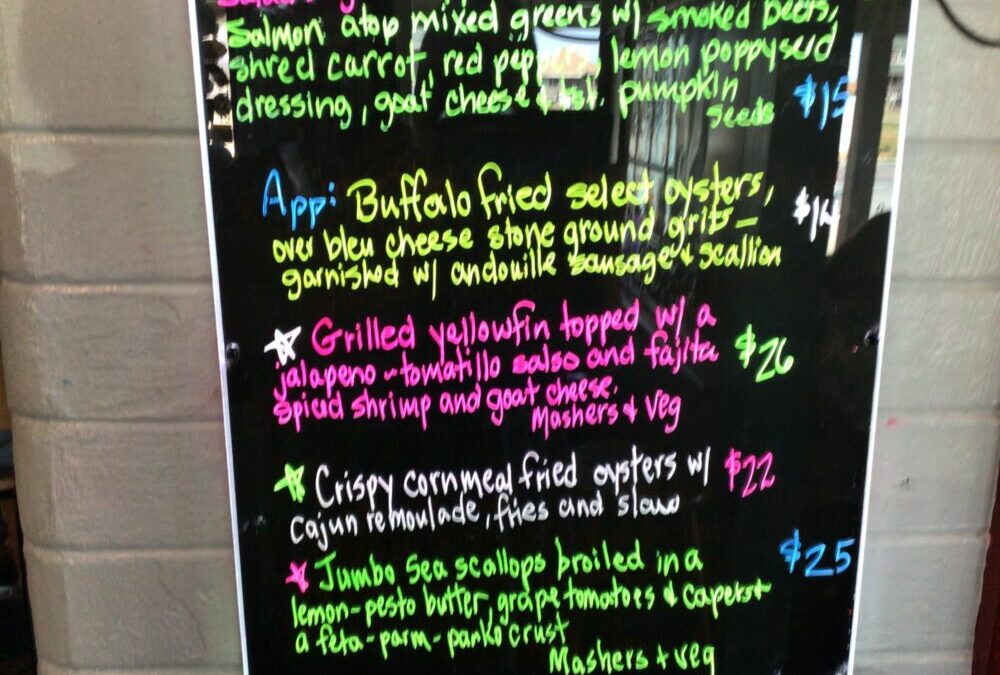 Salmon atop mixed greens w/ smoked beets,
shred carrot, red pepper, lemon poppysud
dressing, goat cheese & tst. pumpkin
seeds $15
App: Buffalo fried select oysters,
over bleu cheese stone ground grits - $14
garnished w/ andouille sausage & scallion
Grilled yellowfin topped w/ a
jalapeno-tomatillo salsa and fajita $26
spiced shrimp and goat cheese.
Mashers & veg
Crispy cornmeal fried oysters w/ $22
cajun remoulade, fries and slaw
Jumbo Sea scallops broiled in a $25
lemon-pesto butter, grape tomatoes & capers &
a feta-parm-panko crust
Mashers + veg